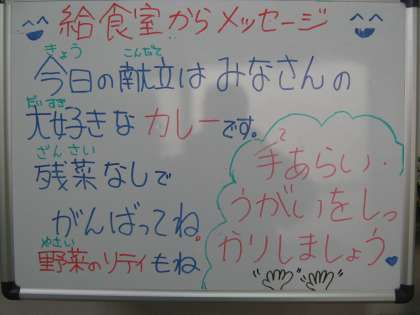 給食室からメッセージ
きょう こんだて
今日の献立は みなさんの
だいすき
大好きな カレーです。
ざんさい
残菜なしで
がんばってね。
やさい
野菜のソティもね
て
手あらい・
うがいをしっ
かりしましょう